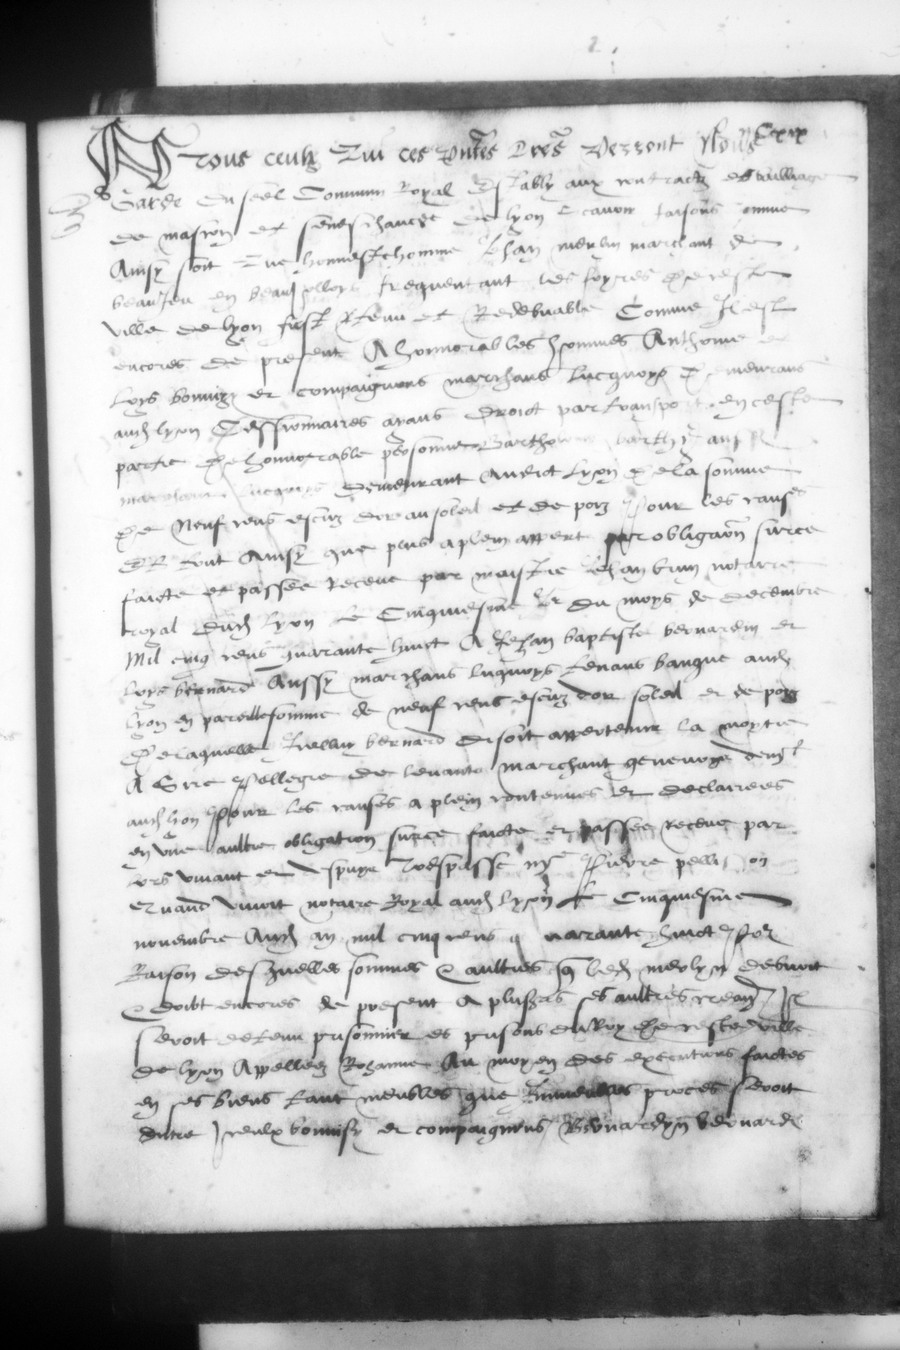 Cxxx
A tous ceulx qui ces pntes lres verront Nous
Garde du seel Commun Royal estably aux contractz es bailliage
de mascon et seneschaucee de lyon Scavoir faisons comme
Ainsy soit que honneste homme Jehan merlin marchant de
beaujeu en beaujollois frequentant les foyres de ceste
ville de lyon fust tenu et Redebvable Comme Il est
encores de present A honnorables hommes Anthoine et
Loys bonvisy et compaignons marchans lucquoys demeurans
aud lyon Cessionnaires ayans droict par transport en ceste
partie de honnorable personne Barthelemy
marchant lucquois demeurant Audict Lyon de la somme
de Neuf cens escuz dor au soleil et de poix Pour les causes
Et tout Ainsy que plus a plein appert par obligaon surce
faicte et passee Receue par maistre Jehan brun notaire
royal dud Lyon le Cinquiesme Jr du moys de decembre
Mil cinq cens quarante huict A Jehan baptiste bernardin et
Loys bernard Aussy marchans luquoys tenans banque aud
Lyon en pareille somme de neuf cens escuz dor soleil et de poix
De laquelle Icelluy bernard disoit appertenir la moytie
A Sire Pellegre de levanto marchant genevoys demt
aud lyon Pour les causes a plein contenues et declairees
en une aultre obligation surce faicte et passee Receue par
lors vivant et depuys trespasse me Pierre pellisson
quand vivoit notaire Royal aud lyon le Cinquiesme
novembre Aud an mil cinq cens quarante huict Por
Raison desquelles sommes & aultres que led merlyn debvoit
& doibt encores de present A plusrs ses aultres crean Il
seroit detenu prisonnier es prisons du Roy de ceste ville
de lyon Appellees Rohanne Au moyen des executions faictes
en ses biens tant meubles que Immeubles proces seroit
entre Iceulx bonvisy et compaignons Bernardyn bernard